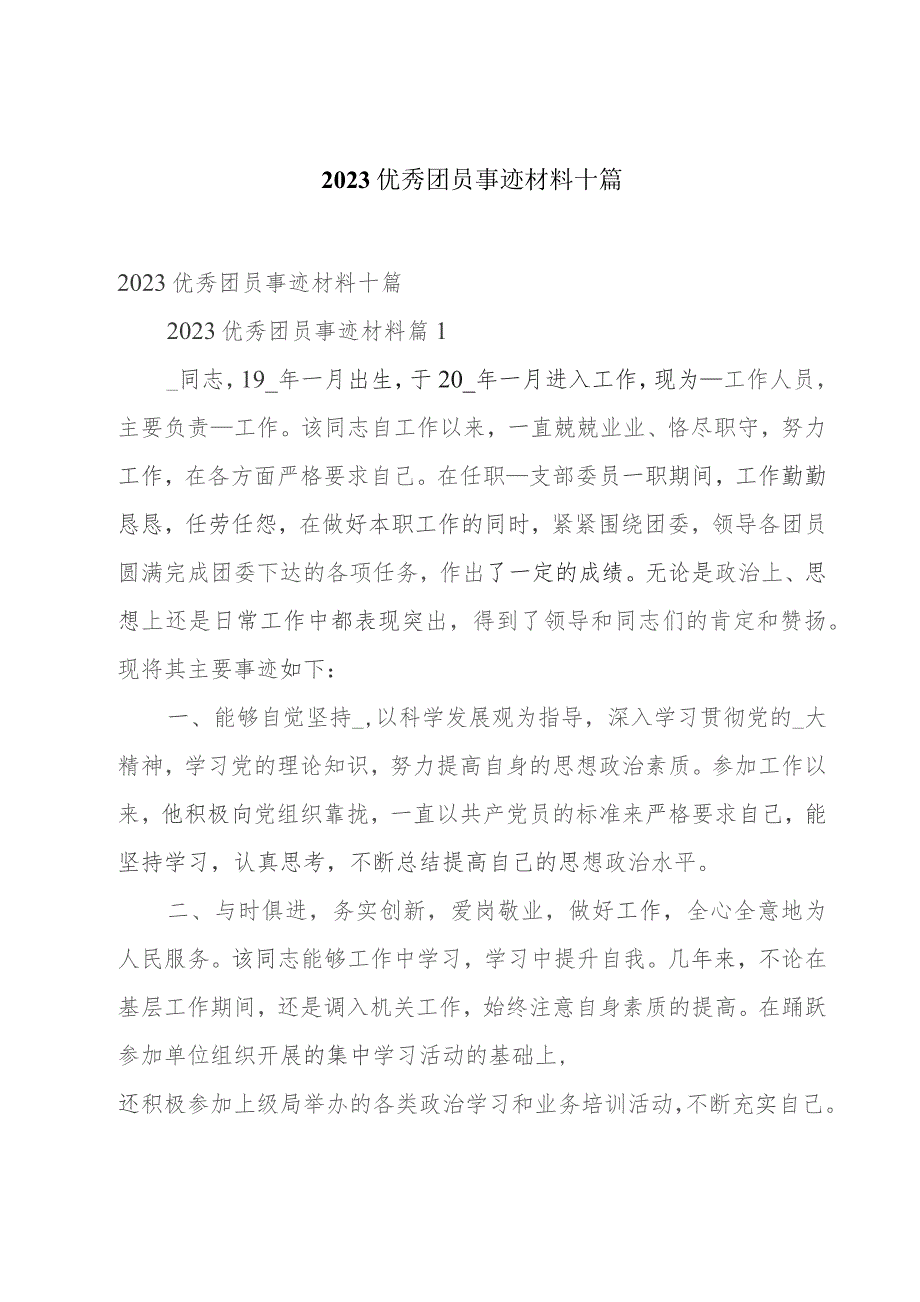 2023优秀团员事迹材料十篇
2023优秀团员事迹材料十篇
2023优秀团员事迹材料篇1
_同志，19_年一月出生，于20_年一月进入工作，现为—工作人员，
主要负责—工作。该同志自工作以来，一直兢兢业业、恪尽职守，努力
工作，在各方面严格要求自己。在任职—支部委员一职期间，工作勤勤
恳恳，任劳任怨，在做好本职工作的同时，紧紧围绕团委，领导各团员
圆满完成团委下达的各项任务，作出了一定的成绩。无论是政治上、思
想上还是日常工作中都表现突出，得到了领导和同志们的肯定和赞扬。
现将其主要事迹如下：
一、能够自觉坚持_,以科学发展观为指导，深入学习贯彻党的_大
精神，学习党的理论知识，努力提高自身的思想政治素质。参加工作以
来，他积极向党组织靠拢，一直以共产党员的标准来严格要求自己，能
坚持学习，认真思考，不断总结提高自己的思想政治水平。
二、与时俱进，务实创新，爱岗敬业，做好工作，全心全意地为
人民服务。该同志能够工作中学习，学习中提升自我。几年来，不论在
基层工作期间，还是调入机关工作，始终注意自身素质的提高。在踊跃
参加单位组织开展的集中学习活动的基础上，
还积极参加上级局举办的各类政治学习和业务培训活动，不断充实自己。